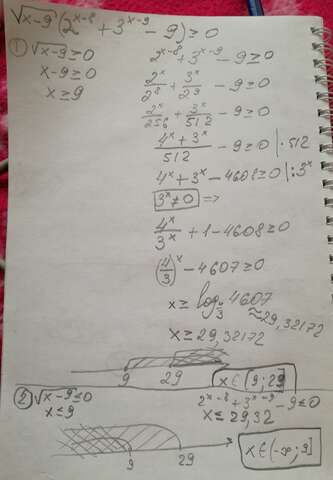 √x-9 (2^(x-8) + 3^(x-9) - 9) ≥ 0
① √x-9 ≥ 0
x-9 ≥ 0
x ≥ 9
2^(x-8) + 3^(x-9) - 9 ≥ 0
2^x/2^8 + 3^x/2^9 - 9 ≥ 0
2^x/256 + 3^x/512 - 9 ≥ 0
(4^x + 3^x)/512 - 9 ≥ 0 | · 512
4^x + 3^x - 4608 ≥ 0 | : 3^x
3^x ≠ 0 =>
4^x/3^x + 1 - 4608 ≥ 0
(4/3)^x - 4607 ≥ 0
x ≥ log_(4/3) 4607
≈ 29,32172
x ≥ 29,32172
9 29 x ∈ [9; 29]
② √x-9 ≤ 0
x ≤ 9
2^(x-8) + 3^(x-9) - 9 ≤ 0
x ≤ 29,32
9 29 x ∈ (-∞; 9]